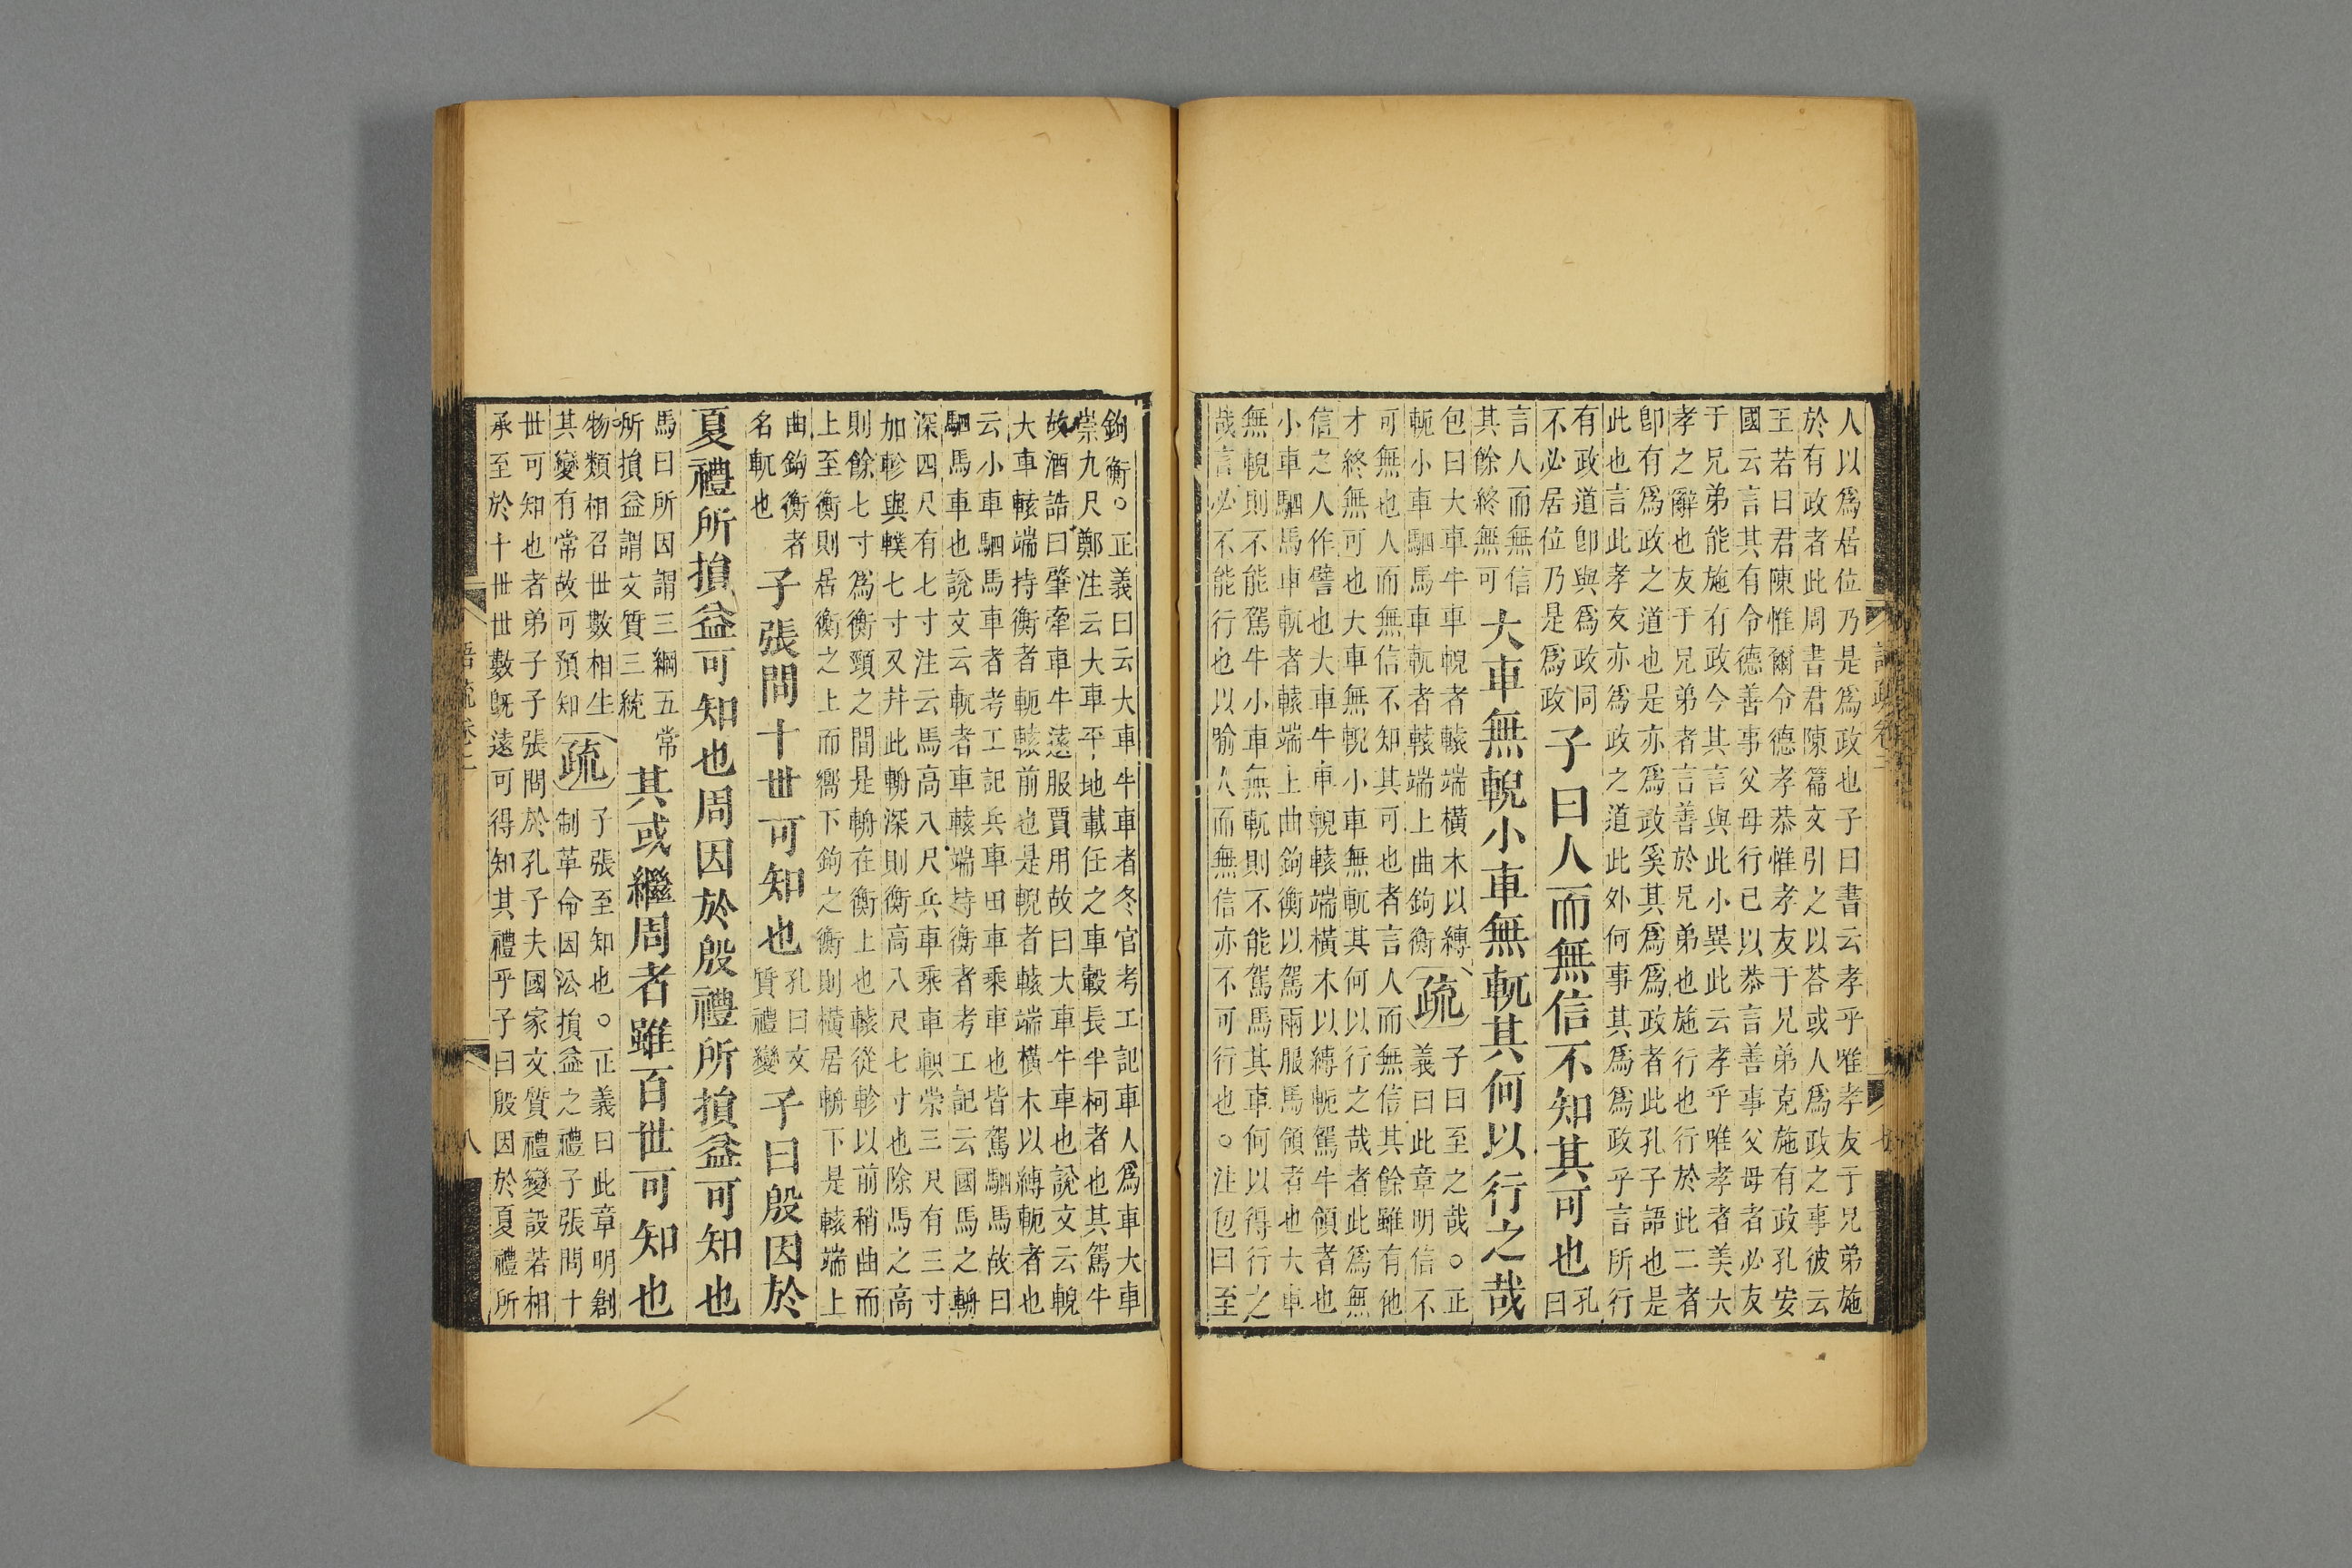 人以爲居位乃是爲政也子曰書云孝乎唯孝友于兄弟施
於有政者此周書君陳篇文引之以荅或人爲政之事彼云
王若曰君陳惟爾令德孝恭惟孝友于兄弟克施有政孔安
國云言其有令德善事父母行已以恭言善事父母者必友
于兄弟能施有政今其言與此小異此云孝乎唯孝者美大
孝之辭也友于兄弟者言善於兄弟也施行也行於此二者
卽有爲政之道也是亦爲政奚其爲爲政者此孔子語也是
此也言此孝友亦爲政之道此外何事其爲爲政乎言所行
有政道卽與爲政同
不必居位乃是爲政
子曰人而無信不知其可也
孔
曰
言人而無信
其餘終無可
大車無輗小車無軏其何以行之哉
包曰大車牛車輗者轅端橫木以縛
軛小車駟馬車軏者轅端上曲鉤衡
疏
子曰至之哉。正
義曰此章明信不
可無也人而無信不知其可也者言人而無信其餘雖有他
才終無可也大車無輗小車無軏其何以行之哉者此爲無
信之人作譬也大車牛車輗轅端橫木以縛軛駕牛領者也
小車駟馬車軏者轅端上曲鉤衡以駕兩服馬領者也大車
無輗則不能駕牛小車無軏則不能駕馬其車何以得行之
哉言必不能行也以喻人而無信亦不可行也。注包曰至
鉤衡。正義曰云大車牛車者冬官考工記車人爲車大車
崇九尺鄭注云大車平地載任之車轂長半柯者也其駕牛
故酒誥曰肇牽車牛遠服賈用故曰大車牛車也說文云輗
大車轅端持衡者軛轅前也是輗者轅端橫木以縛軛者也
云小車駟馬車者考工記兵車田車乘車也皆駕駟馬故曰
駟馬車也說文云軏者車轅端持衡者考工記云國馬之輈
深四尺有七寸注云馬高八尺兵車乘車軹崇三尺有三寸
加軫與轐七寸又幷此輈深則衡高八尺七寸也除馬之高
則餘七寸爲衡頸之間是輈在衡上也轅從軫以前稍曲而
上至衡則居衡之上而嚮下鉤之衡則橫居輈下是轅端上
曲鉤衡者
名軏也
子張問十世可知也
孔曰文
質禮變
子曰殷因於
夏禮所損益可知也周因於殷禮所損益可知也
馬曰所因謂三綱五常
所損益謂文質三統
其或繼周者雖百世可知也
物類相召世數相生
其變有常故可預知
疏
子張至知也。正義曰此章明創
制革命因㳂損益之禮子張問十
世可知也者弟子子張問於孔子夫國家文質禮變設若相
承至於十世世數旣遠可得知其禮乎子曰殷因於夏禮所
語疏卷二
八